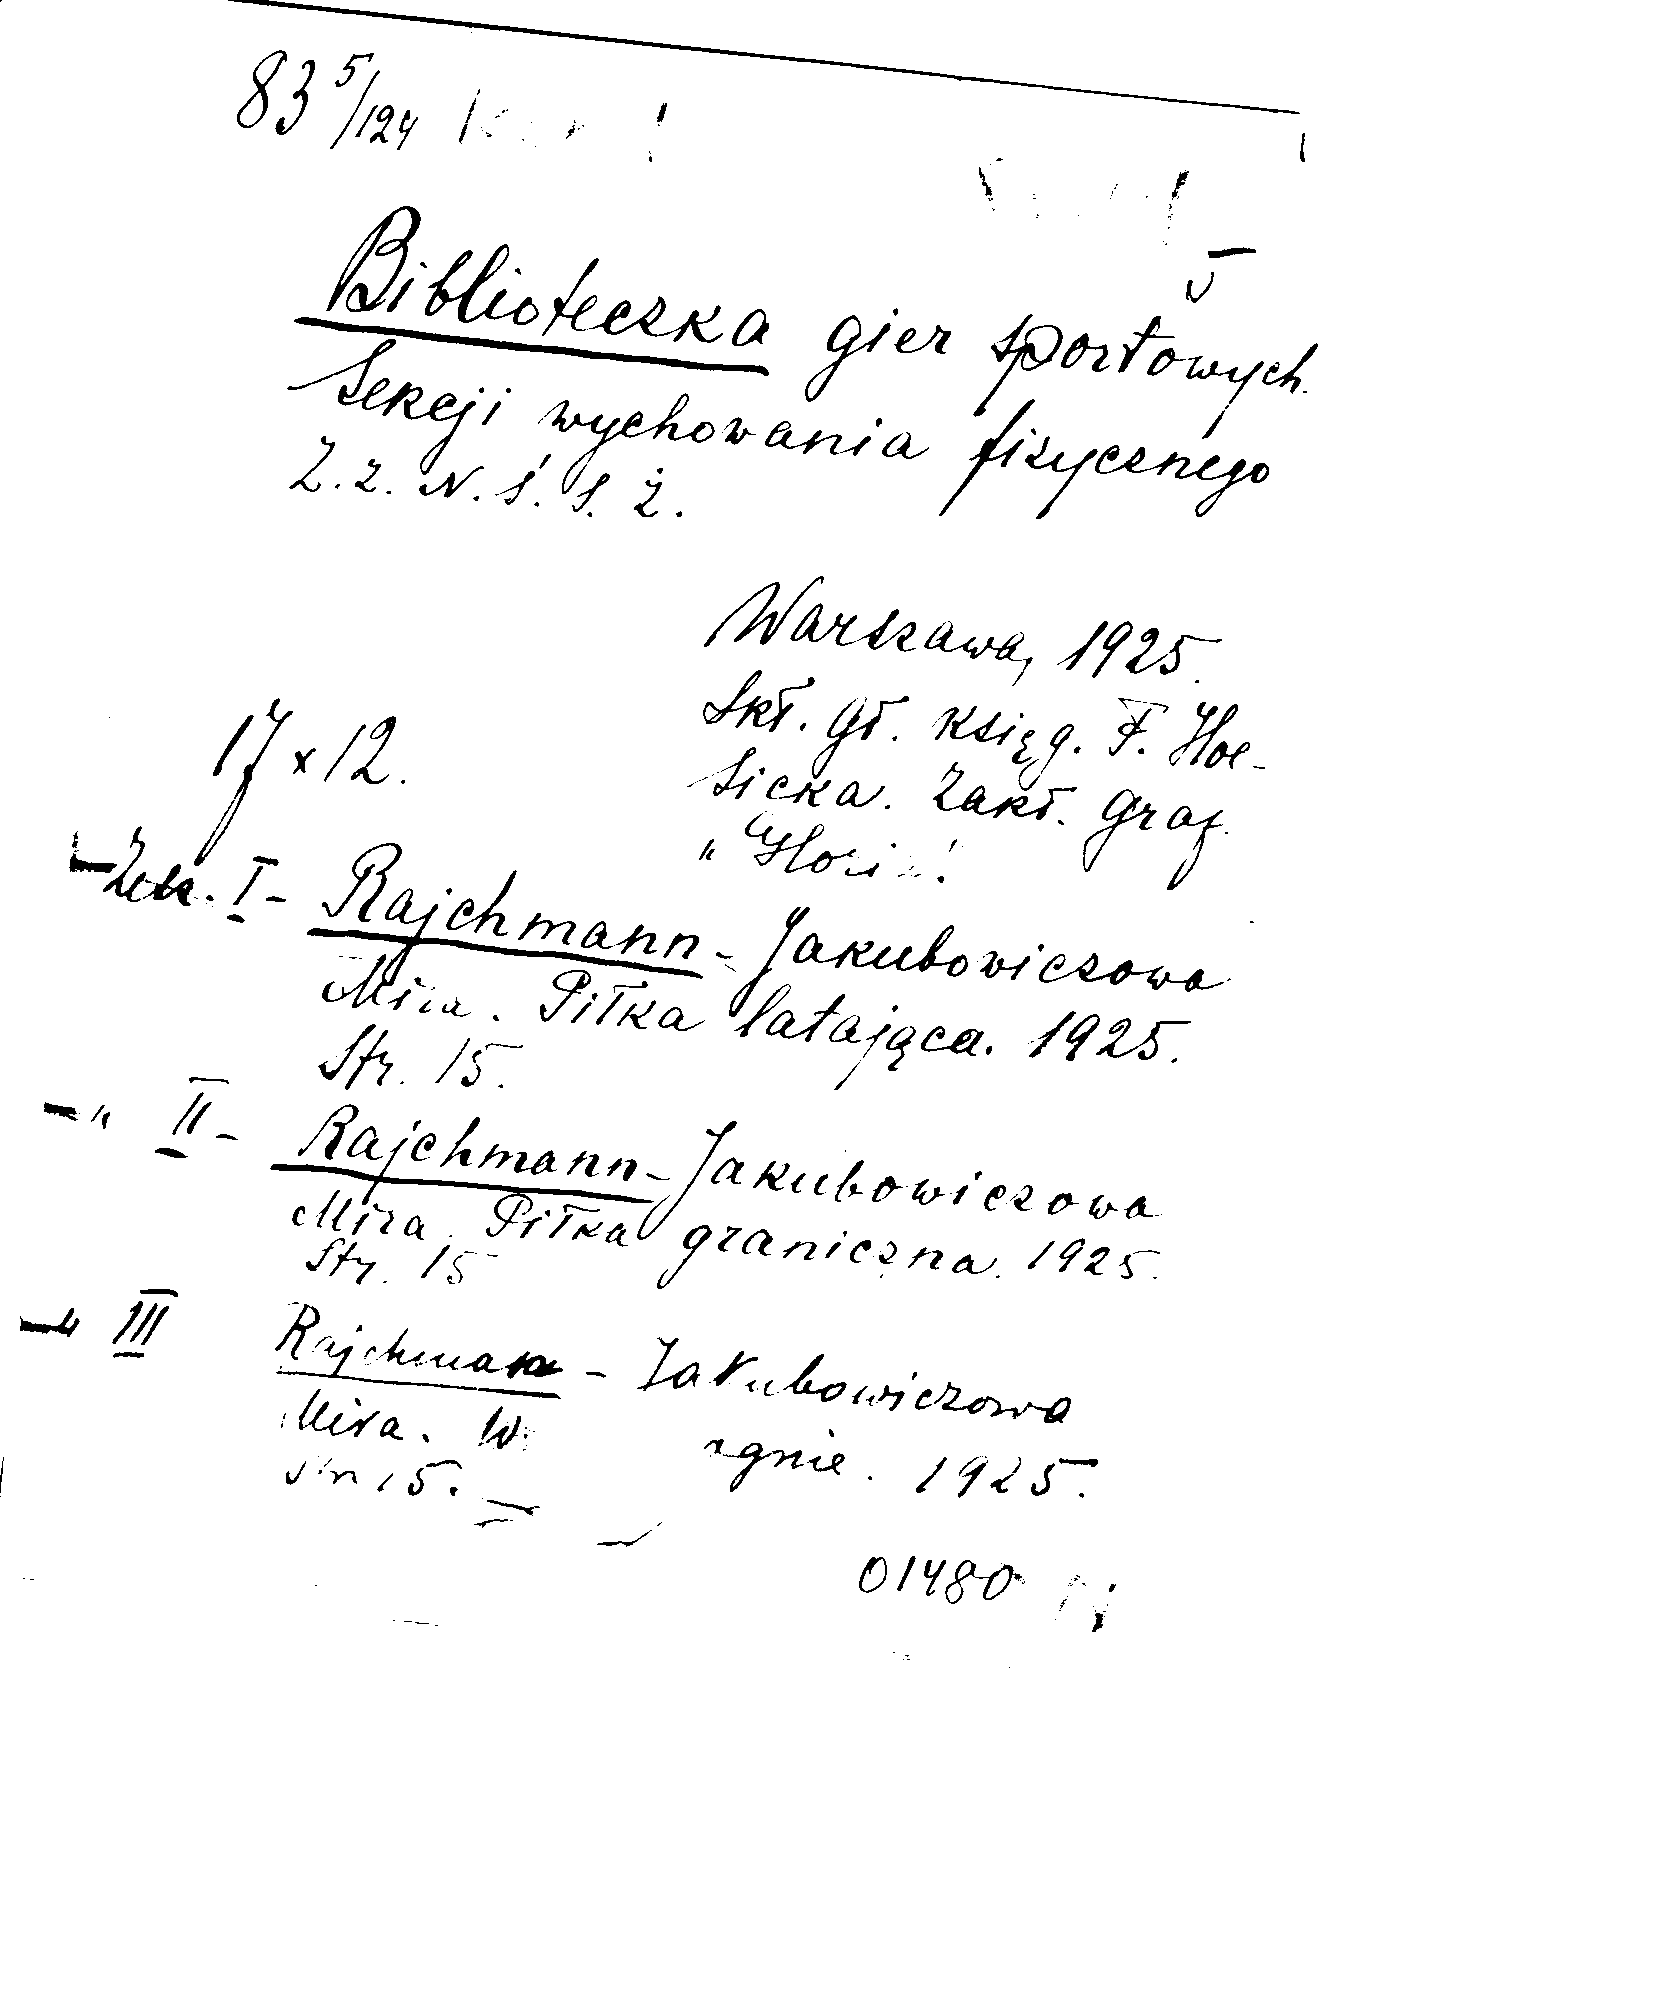 83 5/124
Biblioteczka gier sportowych.
Sekcji wychowania fizycznego
Z. Z. N. Ś. S. Ż.
Warszawa, 1925.
Skł. gł. księg. F. Hoe-
17 x 12.
sicka. Zakł. graf.
Zesz. I - Rajchmann - Jakubowiczowa
Mira. Piłka latająca. 1925.
Str. 15.
— " II - Rajchmann - Jakubowiczowa
Mira. Piłka graniczna. 1925.
Str. 15
— " III Rajchman - Jakubowiczowa
Mira. 1925.
Str 15.
01480